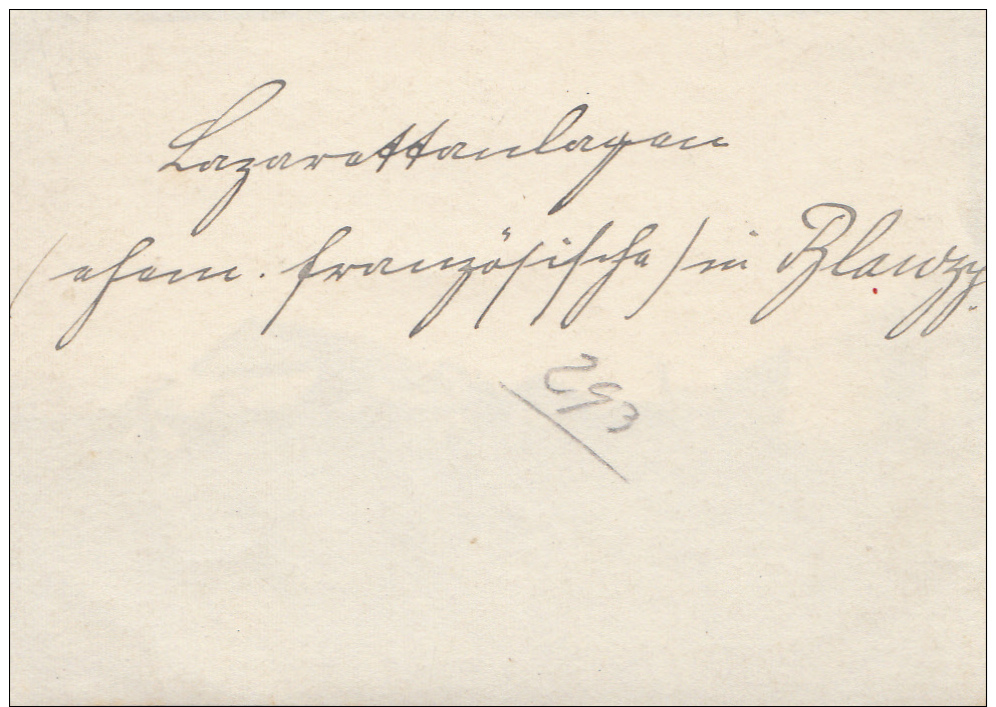 Lazarettanlagen
(ehem. französische) in Blanzy.
293